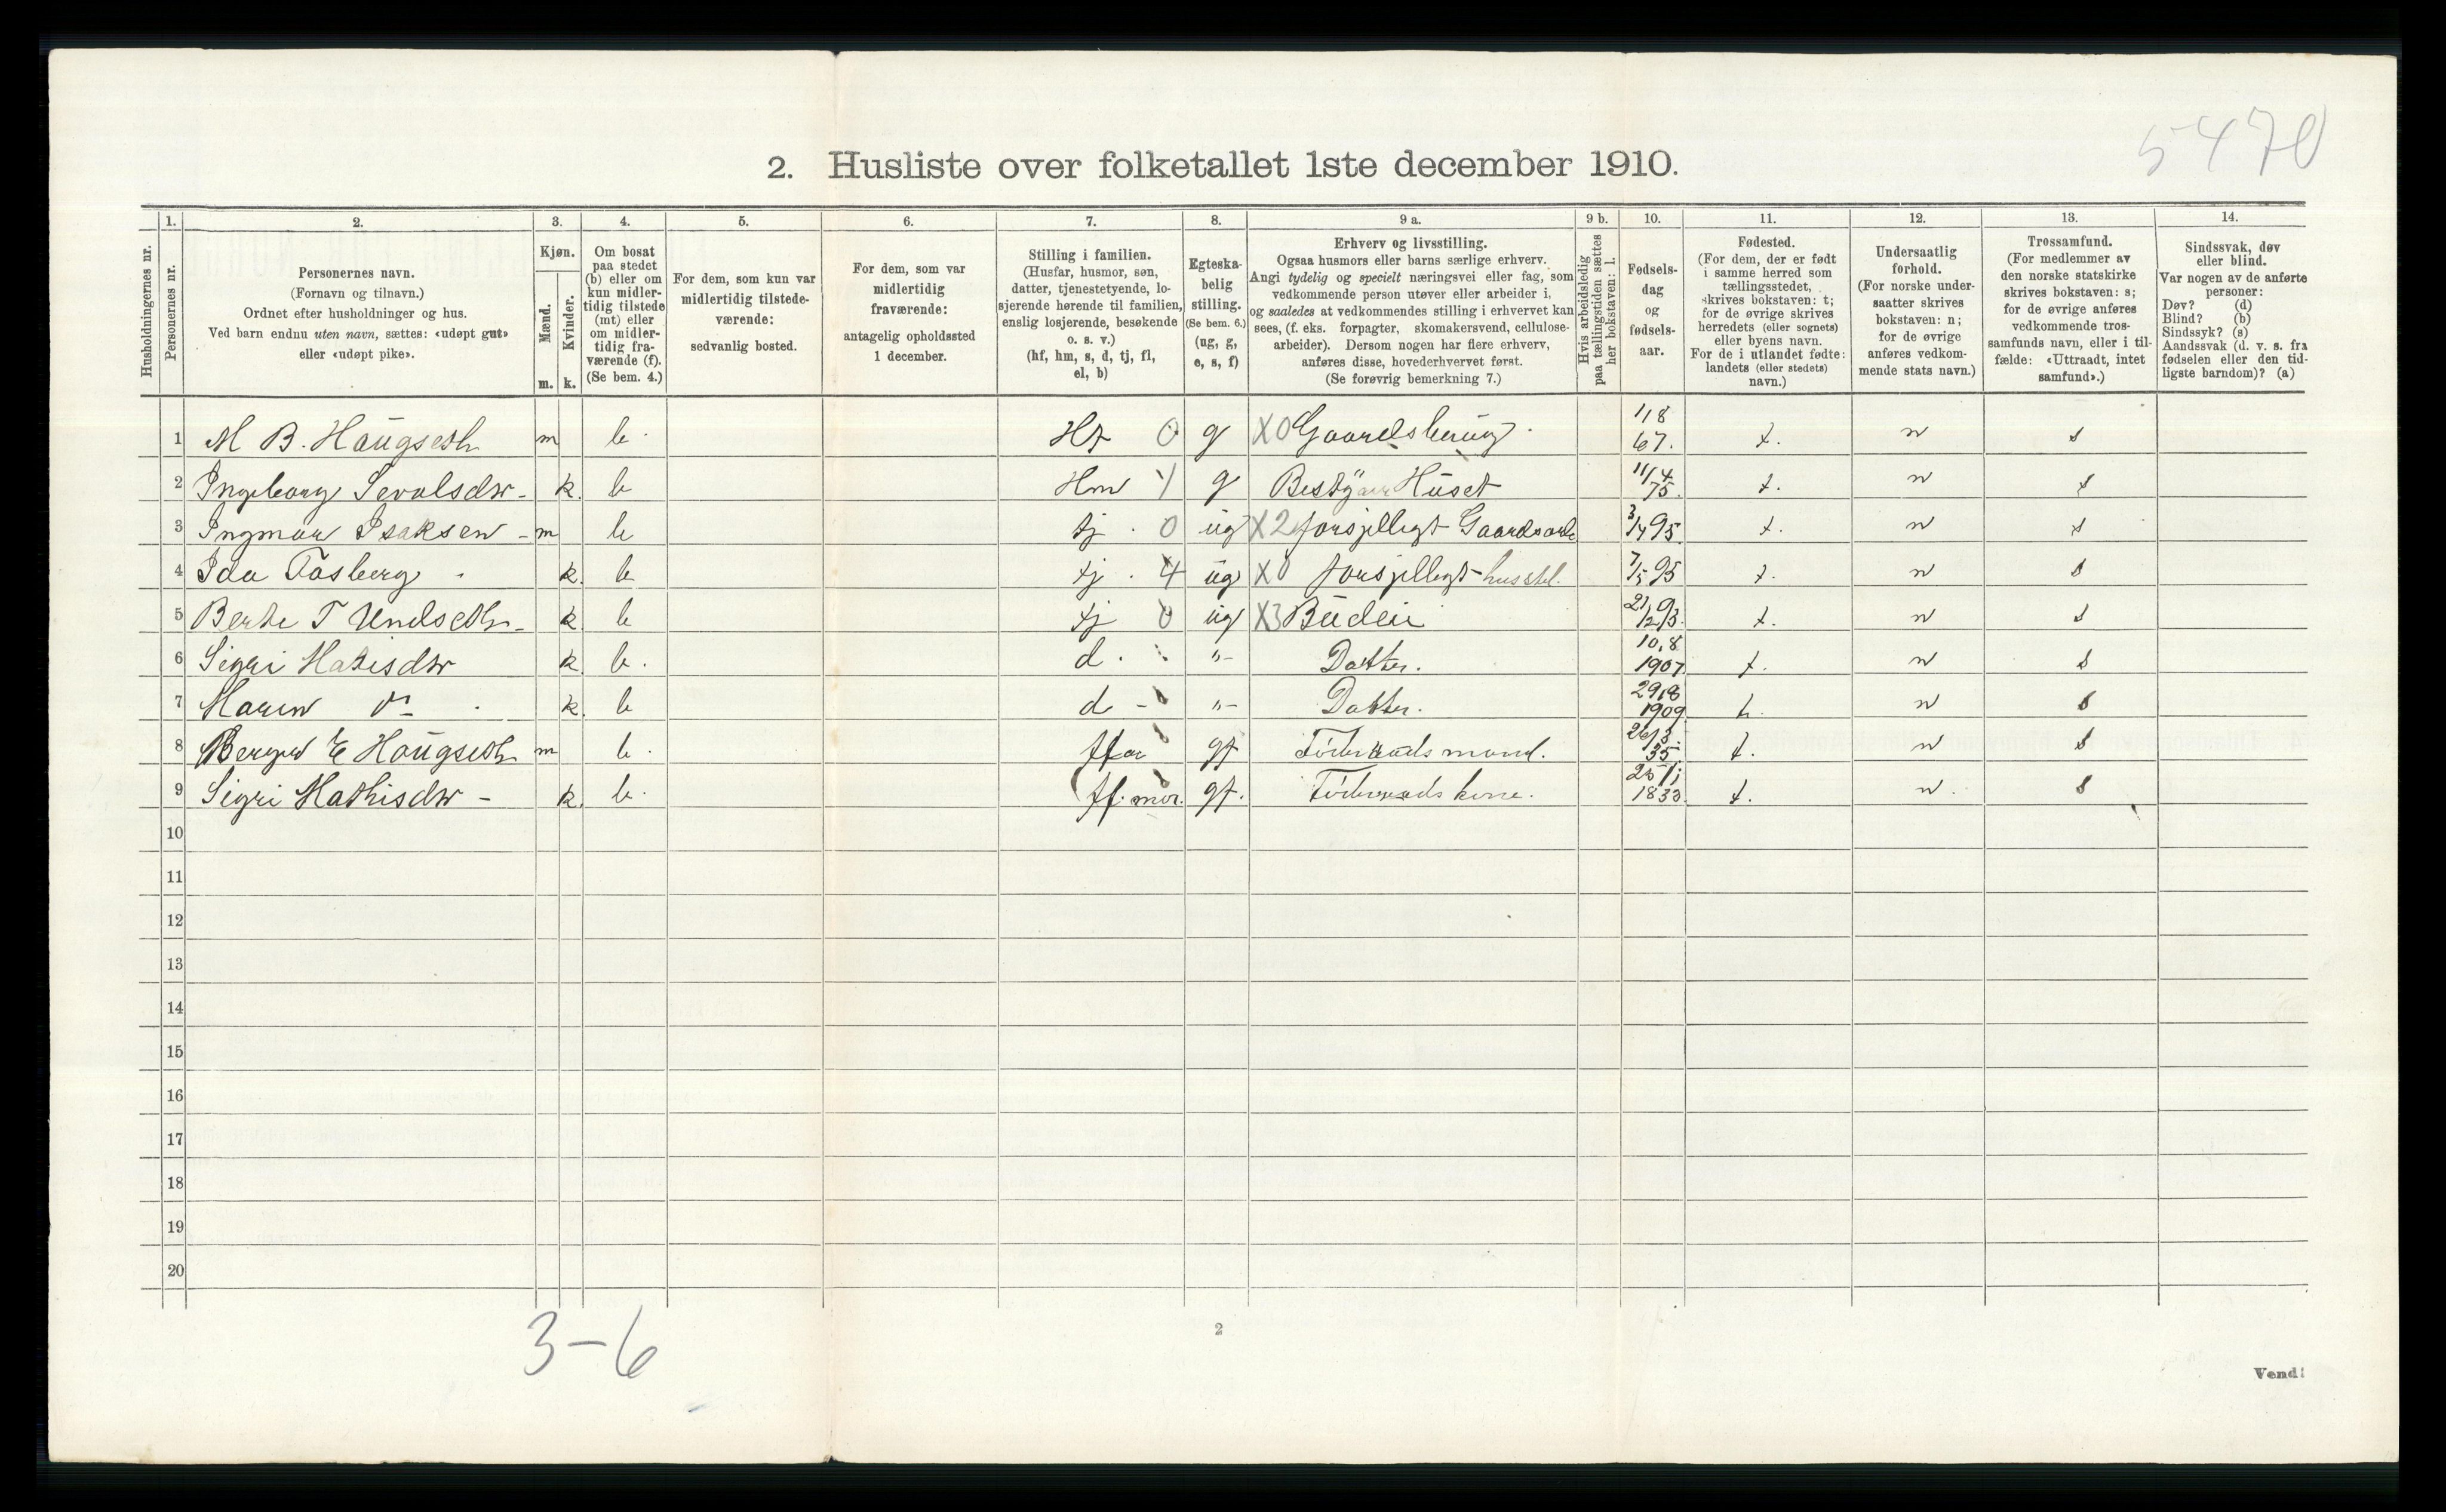 5470
2. Husliste over folketallet 1ste december 1910.
Husholdningernes nr.
1.
Personernes nr.
2.
Personernes navn.
(Fornavn og tilnavn.)
Ordnet efter husholdninger og hus.
Ved barn endnu uten navn, sættes: «udøpt gut»
eller «udøpt pike».
3.
Kjøn.
Mænd.
Kvinder.
m. k.
4.
Om bosat
paa stedet
(b) eller om
kun midler-
tidig tilstede
(mt) eller
om midler-
tidig fra-
værende (f).
(Se bem. 4.)
5.
For dem, som kun var
midlertidig tilstede-
værende:
sedvanlig bosted.
6.
For dem, som var
midlertidig
fraværende:
antagelig opholdssted
1 december.
7.
Stilling i familien.
(Husfar, husmor, søn,
datter, tjenestetyende, lo-
sjerende hørende til familien,
enslig losjerende, besøkende
o. s. v.)
(hf, hm, s, d, tj, fl,
el, b)
8.
Egteska-
belig
stilling.
(Se bem. 6.)
(ug, g,
e, s, f)
9 a.
Erhverv og livsstilling.
Ogsaa husmors eller barns særlige erhverv.
Angi tydelig og specielt næringsvei eller fag, som
vedkommende person utøver eller arbeider i,
og saaledes at vedkommendes stilling i erhvervet kan
sees, (f. eks. forpagter, skomakersvend, cellulose-
arbeider). Dersom nogen har flere erhverv,
anføres disse, hovederhvervet først.
(Se forøvrig bemerkning 7.)
9 b.
Hvis arbeidsledig
paa tællingstiden sættes
her bokstaven: l.
10.
Fødsels-
dag
og
fødsels-
aar.
11.
Fødested.
(For dem, der er født
i samme herred som
tællingsstedet,
skrives bokstaven: t;
for de øvrige skrives
herredets (eller sognets)
eller byens navn.
For de i utlandet fødte:
landets (eller stedets)
navn.)
12.
Undersaatlig
forhold.
(For norske under-
saatter skrives
bokstaven: n;
for de øvrige
anføres vedkom-
mende stats navn.)
13.
Trossamfund.
(For medlemmer av
den norske statskirke
skrives bokstaven: s;
for de øvrige anføres
vedkommende tros-
samfunds navn, eller i til-
fælde: «Uttraadt, intet
samfund».)
14.
Sindssvak, døv
eller blind.
Var nogen av de anførte
personer:
Døv? (d)
Blind? (b)
Sindssyk? (s)
Aandssvak (d. v. s. fra
fødselen eller den tid-
ligste barndom)? (a)
1 M B. Haugseth m b. Hf 0 g X0 Gaardsbrug. 1/8 67. t. n s
2 Ingeborg k. b Hm g Bestyrer Huset 11/4 75. t. n s
3 Ingmar Isaksen - m b tj. 0 ug X2 forsjelligt Gaardsarb 95. t. n s
4 Ida k. b tj. 4 ug X0 forsjelligt husstel. 7/5 95 t. n s
5 Berte T Undseth - k. b tj 0 ug X3 Budeie 21/12 93. t. n s
6 Sigri Matisdtr k. b. d. "- Datter. 10/8 1907. t. n s
7 Maren k. b d - "- Datter. 29/8 1909. t. n s
8 Berger E Haugseth m b. ffar gf Föderaads mand. 26/3 35. t. n s
9 Sigri Mathisdtr - k. b. ff. mor. gf. Föderaads kone. 1833. t. n. s
10
11
12
13
14
15
16
17
18
19
20
3-6
2
Vend!